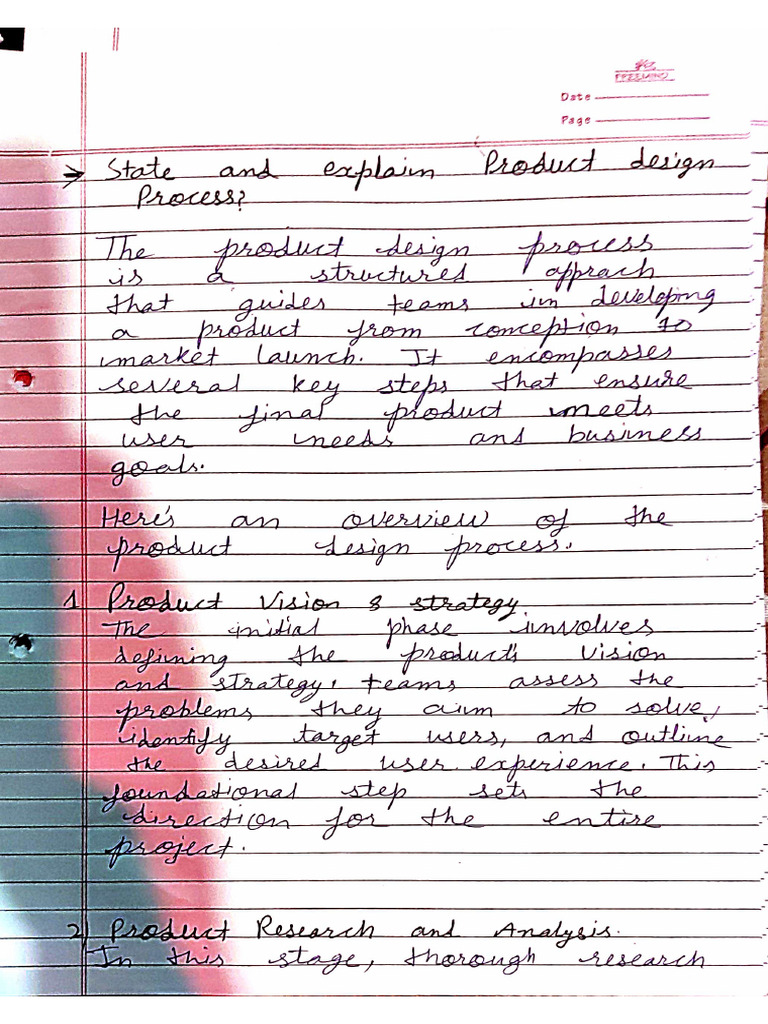 FREEMIND
Date
Page
→ State and explain Product design
Process?
The product design process
is a structured apprach
that guides teams in developing
a product from conception to
market launch. It encompasses
several key steps that ensure
the final product meets
user needs and business
goals.
Here's an overview of the
product design process.
1 Product Vision & strategy.
The initial phase involves
defining the product's vision
and strategy, teams assess the
problems they aim to solve,
identify target users, and outline
the desired user experience. This
foundational step sets the
direction for the entire
project.
2) Product Research and Analysis.
In this stage, thorough research